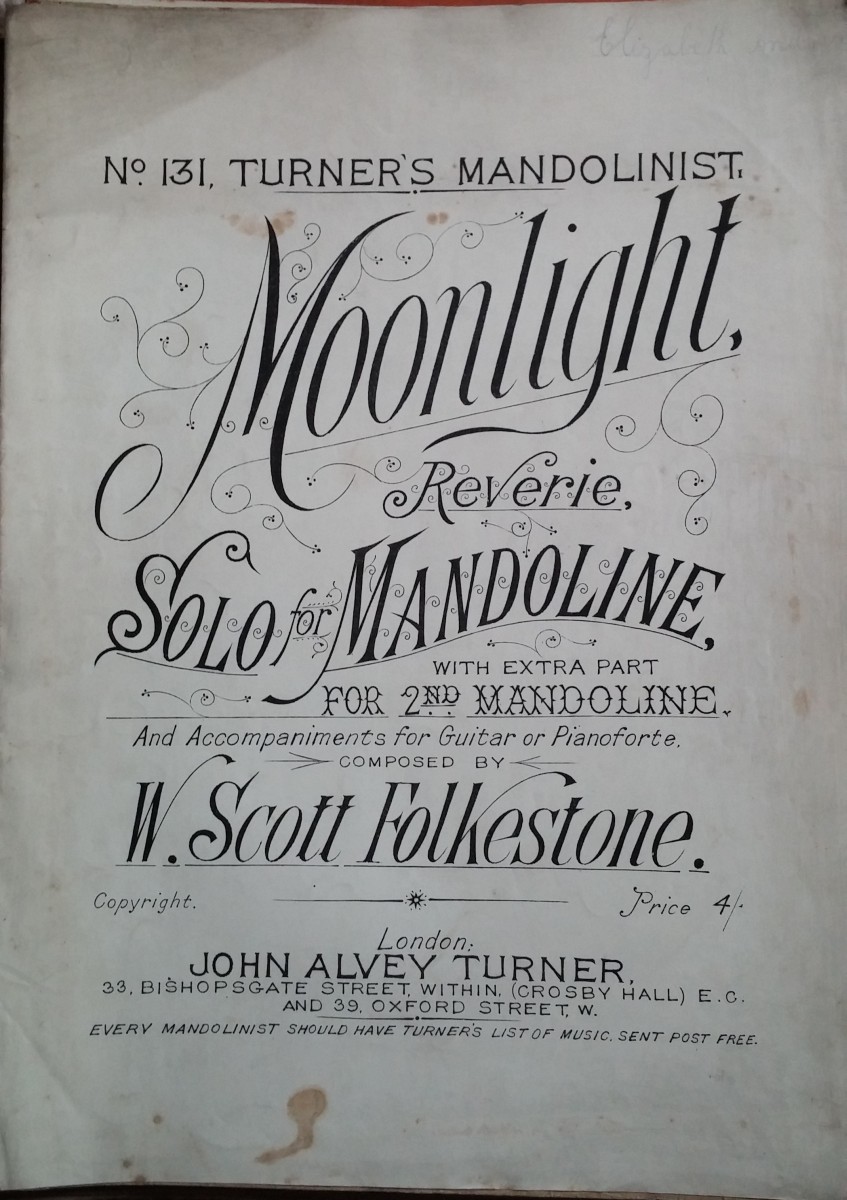 Elizabeth
No. 131, TURNER'S MANDOLINIST.
Moonlight,
Reverie,
SOLO for MANDOLINE,
WITH EXTRA PART
FOR 2ND MANDOLINE.
And Accompaniments for Guitar or Pianoforte.
COMPOSED BY
W. Scott Folkestone.
Copyright. Price 4/-
London:
JOHN ALVEY TURNER,
33, BISHOPSGATE STREET, WITHIN, (CROSBY HALL) E.C.
AND 39, OXFORD STREET, W.
EVERY MANDOLINIST SHOULD HAVE TURNER'S LIST OF MUSIC. SENT POST FREE.